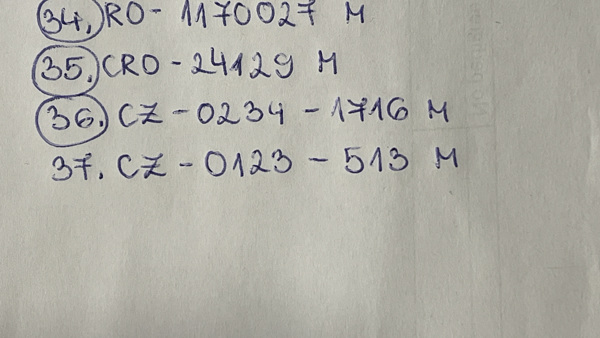 34. RO- 1170027 M
35. CRO - 24129 M
36. CZ - 0234 - 1716 M
37. CZ - 0123 - 513 M